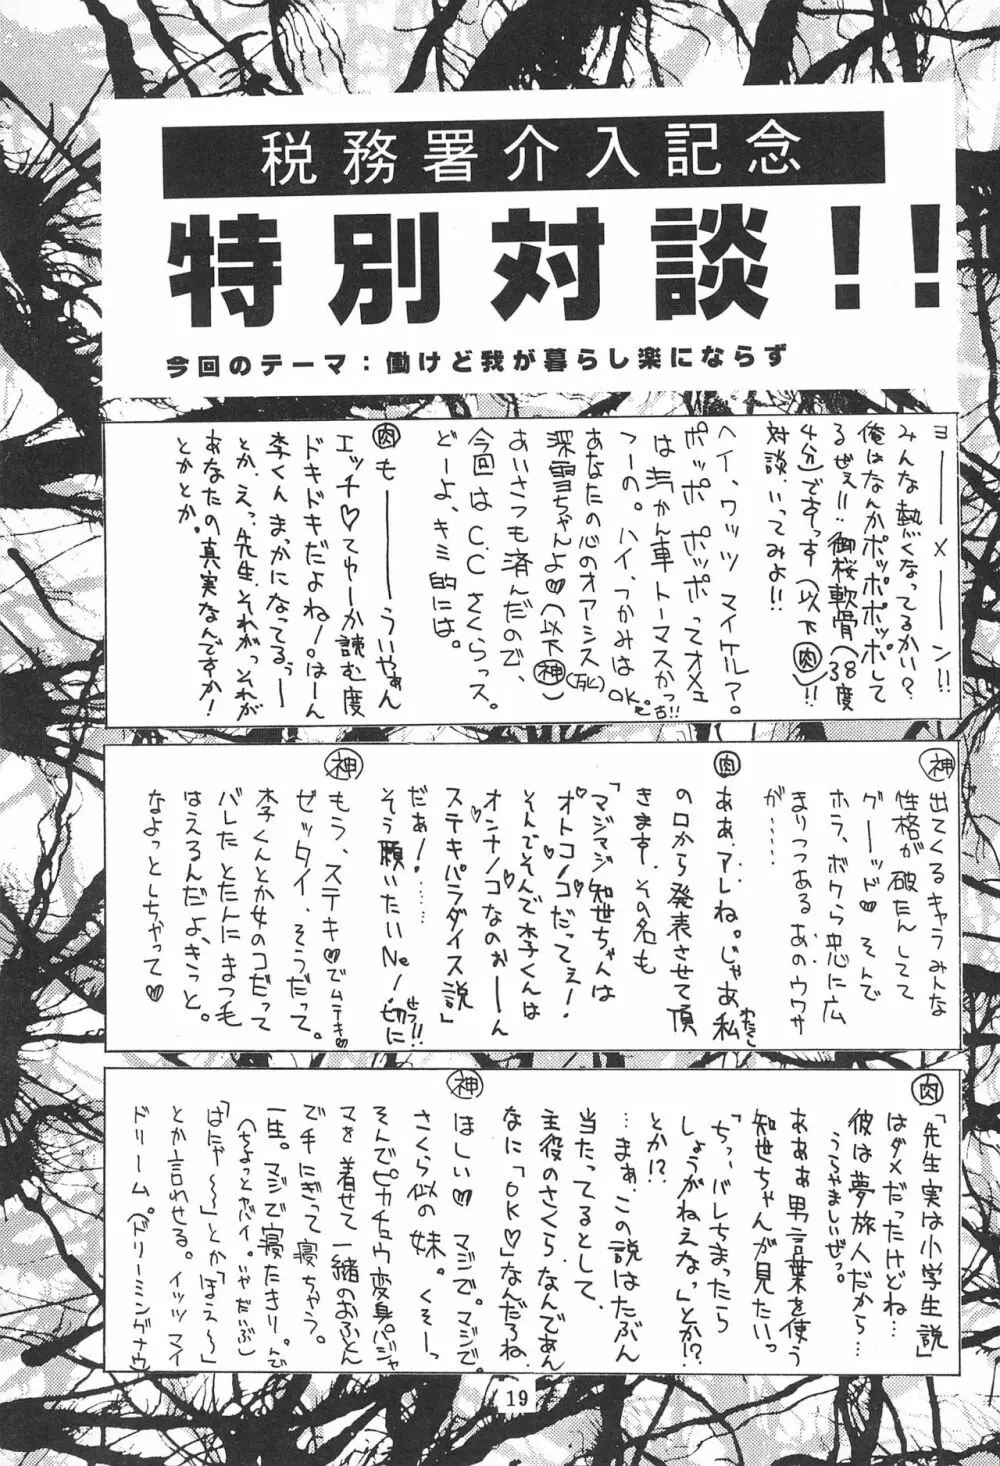 税務署介入記念
特別対談!!
今回のテーマ：働けど我が暮らし楽にならず
ヨーーーメーーーン!!
みんな熱くなってるかい？
俺はなんかポッポポッポして
るぜぇ!!‥御桜軟骨(38度
4分)ですっす(以下㊥肉)!!
対談‥いってみよ!!
ヘイ、ワッツ マイケル？。
ポッポ ポッポってオメェ
は汽かん車トーマスかっ!!
つーの。ハイ、つかみはOK。
あなたの心のオアシス
深雪ちゃんよ♡(以下神)
あいさつも済んだので、
今回はC.C.さくらっス。
どーよ、キミ的には。
肉 もーーーーういやぁん
エッチ♡てゅーか読む度
ドキドキだよね！はーん
李くんまっかになってるぅー
とか、えっ、先生、それがっそれが
あなたの真実なんですか！
とかとか。
神 出てくるキャラみんな
性格が破たんしてて
グーッド♡そんで
ホラ、ボクら忠心に広
まりつつあるあのウワサ
が……
肉 ああ、アレね。じゃあ、私
わたくし
の口から発表させて頂
きます、その名も
「マジマジ知世ちゃんは
オトコノコだってぇ！
そんでそんで李くんは
オンナノコなのぉーーん
ステキパラダイス説」
だぁ！……
そう願いたいNe！切に
せつ!!
神 もう、ステキ♡でムテキ♡
ゼッタイ、そうだって。
李くんとか女のコだって
バレたとたんにまつ毛
はえるんだよ、きっと。
なよっとしちゃって♡
肉 「先生実は小学生説」
はダメだったけどね…
彼は夢旅人だから…
うらやましいぜっ。
あああ男言葉を使う
知世ちゃんが見たいっ
「ちっ、バレちまったら
しょうがねえなっ」とか!?
とか!?
…まぁ、この説はたぶん
当たってるとして、
主役のさくらなんであん
なに「OK♡」なんだろね、
神 ほしい♡ マジで。マジで。
さくら似の妹。くそーっ
そんでピカチュウ変身パジャ
マを着せて一緒のおふとん
で手にぎって寝ちゃう。
一生。マジで寝たきり。んで
(ちょっとヤバイ。いやだいぶ)
「はにゃ〜〜」とか「ほえ〜」
とか言わせる。イッツ マイ
ドリーム。(ドリーミングナウ)
19